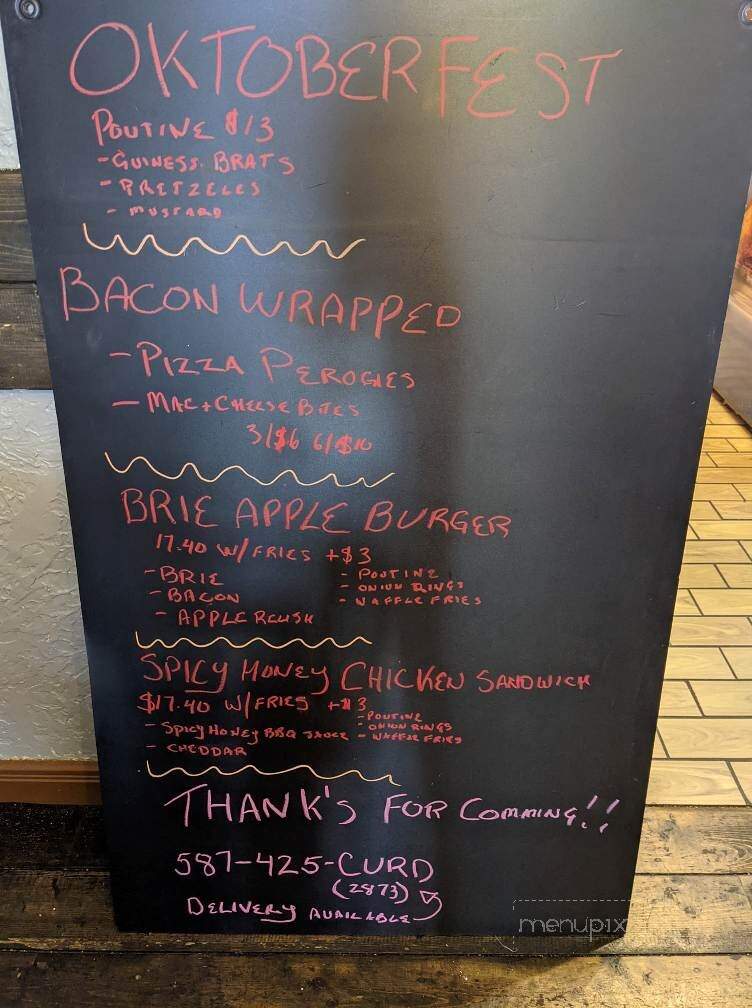 OKTOBERFEST
POUTINE $13
- GUINESS BRATS
- PRETZELES
- MUSTARD
BACON WRAPPED
- PIZZA PEROGIES
- MAC + CHEESE BITES
3/$6 6/$10
BRIE APPLE BURGER
17.40 W/ FRIES +$3
- BRIE - POUTINE
- BACON - ONION RINGS
- APPLE RELISH - WAFFLE FRIES
SPICY HONEY CHICKEN SANDWICH
$17.40 W/ FRIES +$3
- POUTINE
- SPICY HONEY BBQ SAUCE - ONION RINGS
- CHEDDAR - WAFFLE FRIES
THANK'S FOR COMMING!!
587-425-CURD
(2873)
DELIVERY AVAILABLE
menupix